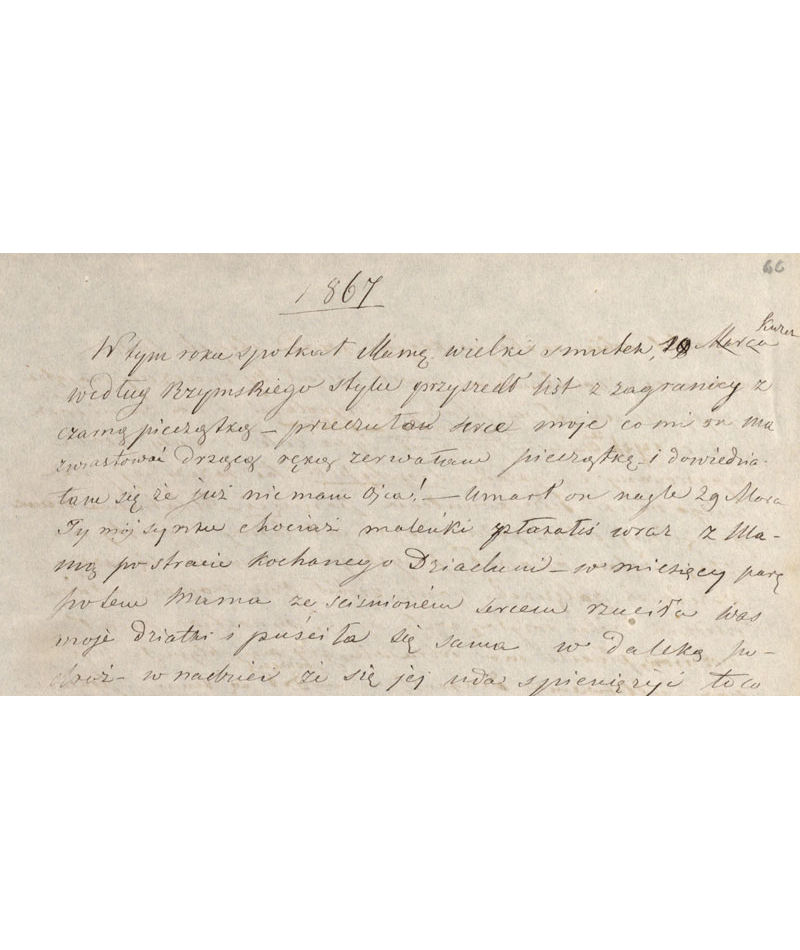 66
1867
W tym roku spotkał Mamę wielki smutek, 19 Marca
według Rzymskiego stylu przyszedł list z zagranicy z
czarną pieczątką – przeczułam serce moje co mi on ma
zwiastować drżącą ręką zerwałam pieczątkę i dowiedzia-
łam się że już nie mam Ojca! – Umarł on nagle 29 Marca
Ty mój synku chociaż maleńki płakałeś wraz z Ma-
mą po stracie kochanego Dziaduni – w miesięcy parę
potem Mama ze ściśnioném sercem rzuciła was
moje dziatki i puściła się sama w daleką po-
dróż – w nadziei że się jej uda spieniężyć to co